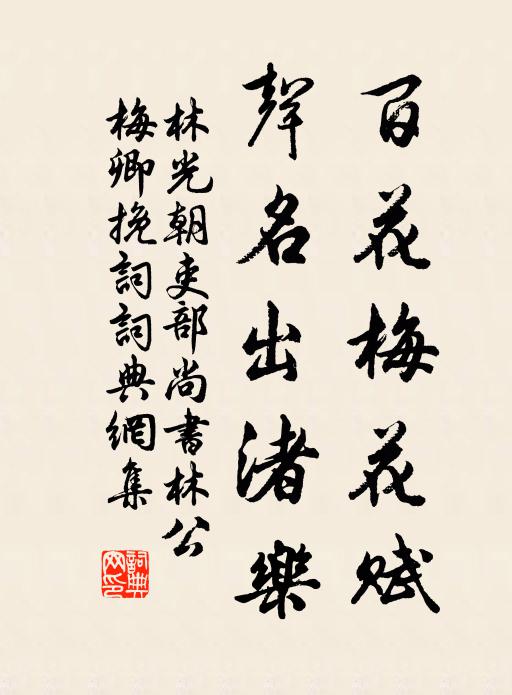 百花梅花賦
聲名出渚樂
林光朝吏部尚書林公
梅卿挽詞詞典網集
詞典网印